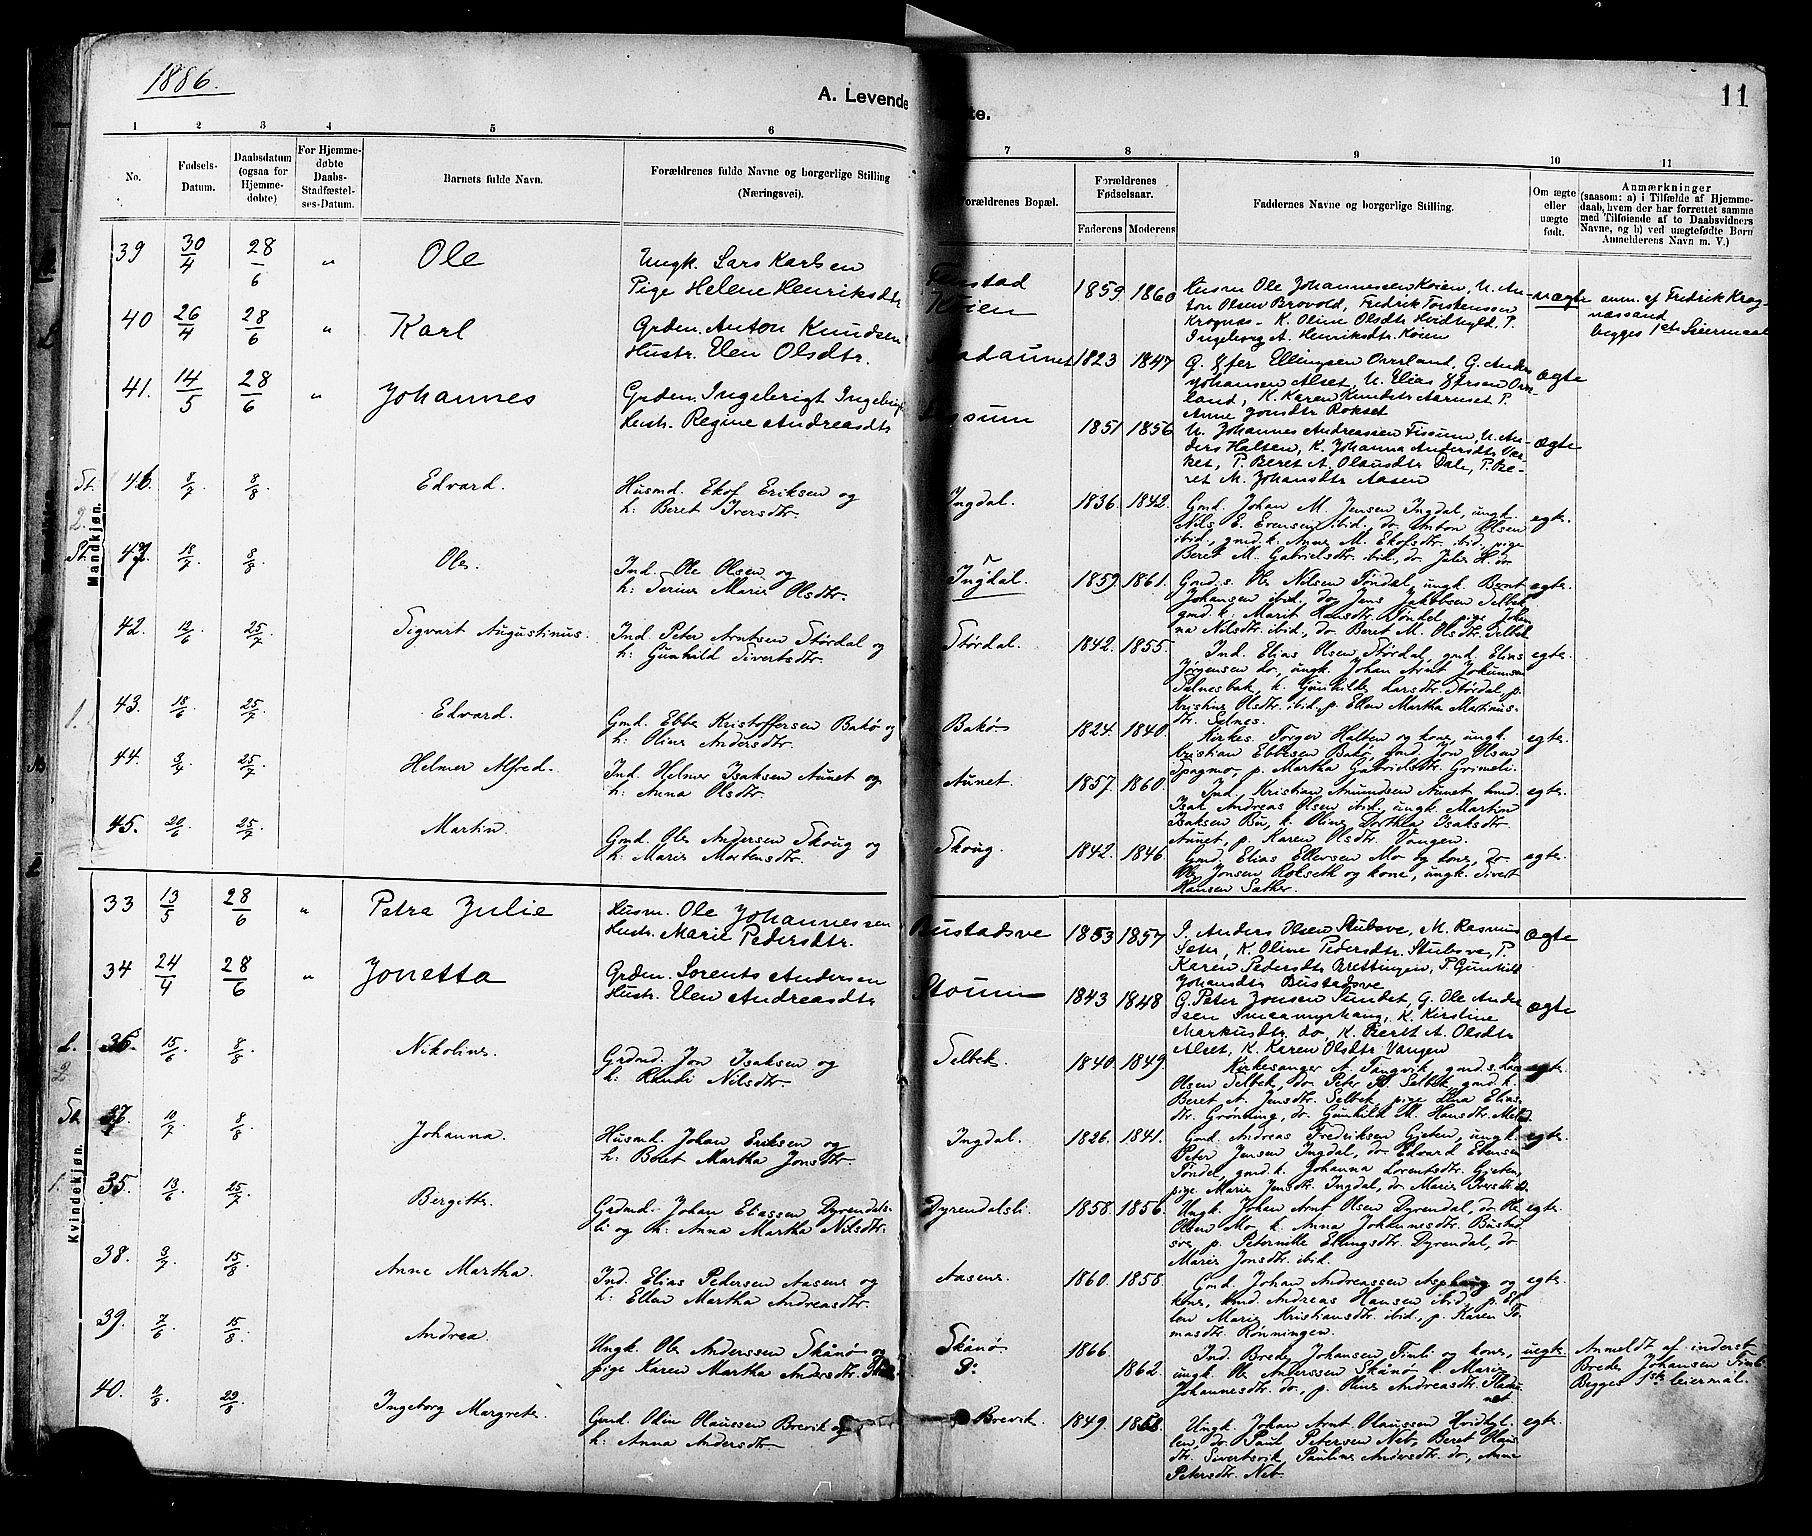 1886.
A. Levende
te.
11
1
2
3
4
5
6
7
8
9
10
11
No.
Fødsels-
Datum.
Daabsdatum
(ogsaa for
Hjemme-
døbte)
For Hjemme-
døbte
Daabs-
Stadfæstel-
ses-Datum.
Barnets fulde Navn.
Forældrenes fulde Navne og borgerlige Stilling
(Næringsvei).
Forældrenes Bopæl.
Forældrenes
Fødselsaar.
Faderens
Moderens
Faddernes Navne og borgerlige Stilling.
Om ægte
eller
uægte
født.
Anmærkninger
(saasom: a) i Tilfælde af Hjemme-
daab, hvem der har forrettet samme
med Tilføiende af to Daabsvidners
Navne, og b) ved uægtefødte Børn
Anmelderens Navn m. V.)
Mandkjøn.
39 30/4 28/6 " Ole
Ungk. Lars Karlsen
Pige Helene Henriksdtr
Køien
1859 1860
Husm Ole Johannesen Køien, U. An-
ton Olsen Brovold, Fredrik Torstensen
Kragnæs- K. Oline Olsdtr Hvidhyld. P.
Ingeborg A. Henriksdtr. Køien
uægte
anm. af Fredrik Krag-
næssand
begges 1ste Leiermaal
40 26/4 28/6 " Karl
Grden. Anton Knudsen
Hustr. Elen Olsdtr.
1823 1847
G. Ellingsen Overland, G. Anders
Johansen Alset, U. Elias Ofersen Over-
land, K. Karen Knudsdtr Aarnset P.
Anne Jonsdtr Rokset
ægte
41. 14/5 28/6 " Johannes
Grden. Ingebrigt Ingebrigts
Hustr. Regine Andreasdtr
1851 1856
U. Johannes Andreassen Fissum, U. An-
ders Halsen, K. Johanna Andersdtr Vær-
ket, P. Beret A. Olausdtr Dale, P. Be-
ret M. Johansdtr Aasen
ægte
St. 46. 8/7 8/8 Edvard.
Husmd. Ekof Eriksen og
h: Beret Iversdtr.
Ingdal.
1836. 1842.
Gmd. Johan M. Jensen Ingdal, ungk.
Nils E. Evensen ibid. do Anton Olsen
ibid, gmd. k. Anne M. Ekofsdtr. ibid, pige
Beret M. Gabrielsdtr. ibid, do
egte.
2.
St. 47. 18/7 8/8 Ole.
Ind. Ole Olsen og
h: Serine Marie Olsdtr.
Ingdal.
1859. 1861.
Gmd. s. Ole Nilsen Tøndel, ungk. Bernt
Johansen ibid. do Jens Jakobsen Selbek
gmd. k. Marit Hansdtr. Tøndel pige Johan
na Nilsdtr. ibid., do Beret M. Olsdtr. Selbek
egte.
42. 12/6 25/7 Sigvart Augustinus.
Ind. Peter Arntsen Størdal og
h: Gunhild Sivertsdtr.
Størdal.
1842. 1855.
Ind. Elias Olsen Størdal, gmd. Elias
Jørgensen do, ungk. Johan Arnt Jokumsen
Selnesbak, k. Gunhilde Larsdtr. Størdal, p.
Kristine Olsdtr. ibid, p. Ellen Martha Martinus-
dtr. Selnes.
egte.
1.
43. 18/6 25/7 Edvard.
Gmd. Ebbe Kristoffersen Bakø og
h: Oline Andersdtr.
Bakø
1824. 1840.
Kirkes. Torger Halten og kone, ungk.
Kristian Ebbesen Bakø gmd. Jon Olsen
Spagmo, p. Martha Gabrielsdtr. Grimeli.
egte.
44. 25/7 Helmer Alfred.
Ind. Helmer Isaksen Aunet og
h: Anna Olsdtr.
Aunet.
1857. 1860.
Ind. Kristian Amundsen Aunet hmd.
Isak Andreas Olsen ibid. ungk. Martin
Isaksen Bu, k. Oline Dorthea Isaksdtr.
Aunet, p. Karen Olsdtr. Vangen.
egte.
45. 20/6 25/7 Martin.
Gmd. Ole Andersen Skoug og
h: Marie Mortensdtr.
Skoug.
1842. 1846.
Gmd. Elias Ellevsen Mo og kone, do
Ole Jonsen Rokseth og kone, ungk. Sivert
Hansen Sæther.
egte.
Kvindekjøn.
33 13/5 28/6 " Petra Julie
Husm. Ole Johannessen
Hustr. Marie Pedersdtr.
Bustadsve
1853 1857
I. Anders Olsen Stubsve, M. Rasmus
Seter, K. Oline Pedersdtr. Stubsve, P.
Karen Pedersdtr Brettingen, P. Gunhild
Johansdtr Bustadsve
ægte
34 24/4 28/6 " Jonetta
Grden. Lorents Andersen
Hustr. Elen Andreasdtr
1843 1848
G. Peter Jonsen Sundet, G. Ole Ander
sen Smeamyrhaug, K. Kirstine
Markusdtr do, K. Beret A. Olsdtr
Alset, K. Karen Olsdtr Vangen
ægte
36. 15/6 8/8 Nikoline.
Grdmd. Jon Isaksen og
h: Randi Nilsdtr.
Selbek.
1840. 1849.
Kirkesanger A. Tangvik, gmd. s. Lars
Olsen Selbek, do Peter Selbek, gmd. k.
Beret A. Jensdtr. Selbek, pige Lina Elias-
dtr. Grønning, do Gunhild M. Hansdtr.
egte.
2.
St. 37. 10/7 8/8 Johanna.
Husmd. Johan Eriksen og
h: Beret Martha Jonsdtr.
Ingdal.
1826. 1841.
Gmd. Andreas Fredriksen Gjeten, ungk.
Peter Jensen Ingdal, do Edvard Edensen
Tøndel, gmd. k. Johanna Lorentsdtr. Gjeten,
pige Marie Jensdtr. Ingdal, do Marie Iversdtr.
egte.
1. 35. 13/6 25/7 Bergitte.
Grdmd. Johan Eliassen Dyrendals-
li og h: Anna Martha Nilsdtr.
Dyrendalsli.
1858. 1856.
Ungk. Johan Arnt Olsen Dyrendal, do Ole
Olsen Mo, k. Anna Johannesdtr. Bustad
sve, p. Peternille Ellingsdtr. Dyrendal, do
Marie Jonsdtr. ibid.
egte.
38. 3/7 15/8 Anne Martha.
Ind. Elias Pedersen Aasen og
h: Ellen Martha Andreasdtr.
Aasen.
1860. 1858.
Gmd. Johan Andreassen Asphaug og
kone, hmd. Andreas Hansen ibid, p. El-
len Marie Kristiansdtr. ibid, p. Karen To-
masdtr. Rønningen.
egte.
39. 7/6 15/8 Andrea.
Ungk. Ole Anderssen Skånø og
pige Karen Martha Andersdtr.
Skånø
Do
1866.
1862.
Ind. Brede Johansen Timli og kone,
ungk. Ole Anderssen Skånø, Marie
Johannesdtr. do, p. Oline Andreasdtr. Fladau-
net
uegte.
Anmeldt af inderst
Brede Johansen Timli
Begges 1ste leiermål.
40. 29/8 Ingeborg Margrete.
Gmd. Olin Olaussen Brevik og
h: Anna Andersdtr.
Brevik.
1849. 1858.
Ungk. Johan Arnt Olaussen Hvidhyl-
len, do Paul Petersen Neb, Beret Olaus-
dtr. Sivertsvik, Pauline Andersdtr. do, Anne
Petersdtr. Neb.
egte.